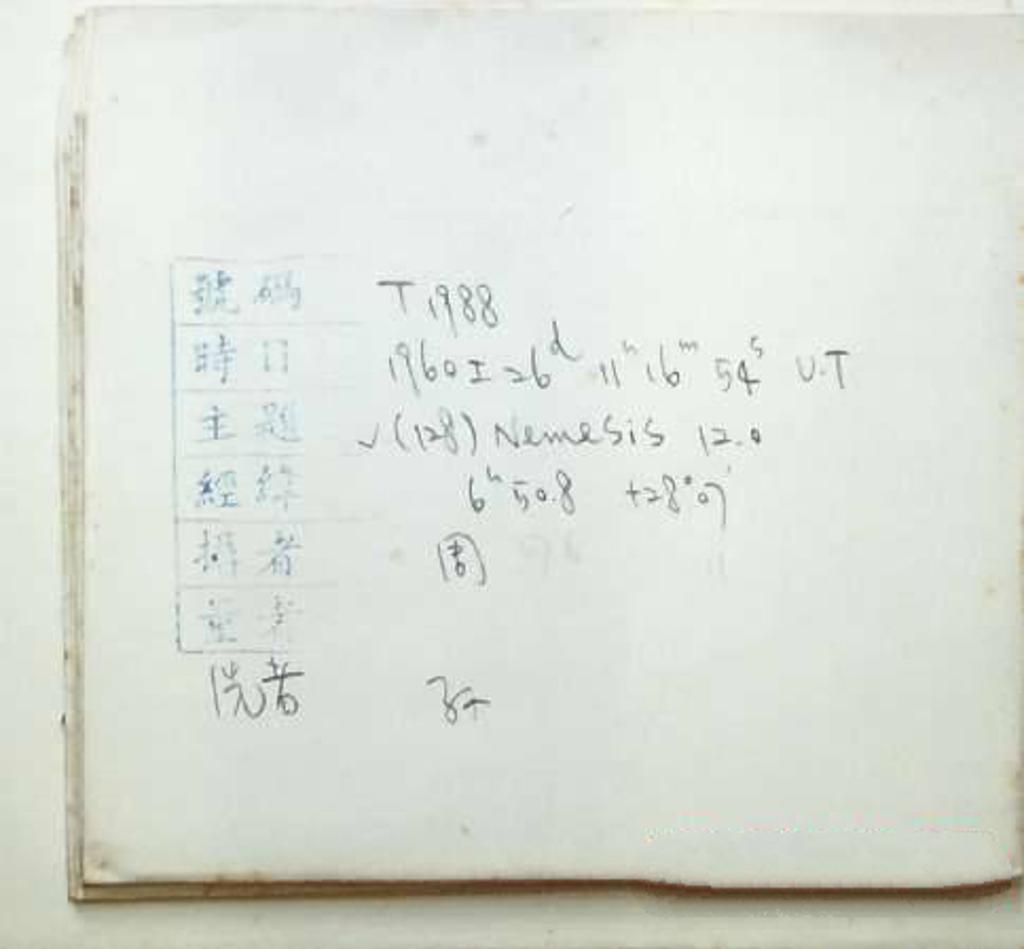 號碼 T 1988
時日 1960 I 26ᵈ 11ʰ 16ᵐ 54ˢ U.T
主題 ✓(128) Nemesis 12.0
經緯 6ʰ50.8 +28°07′
攝者 周
洗者